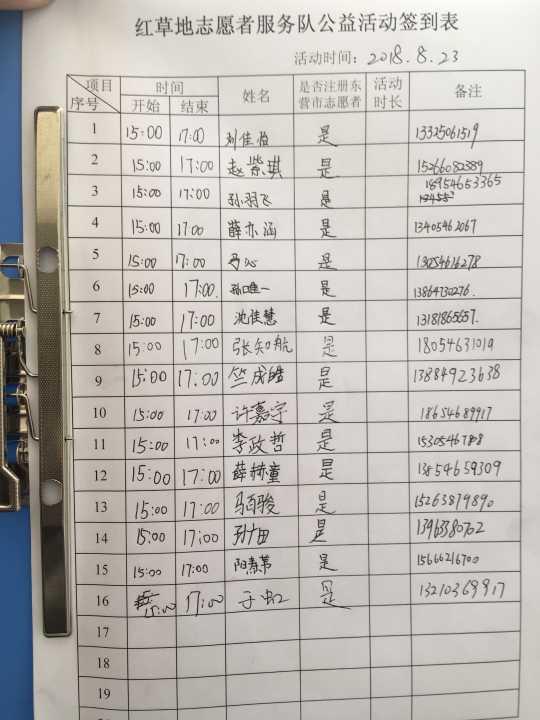 红草地志愿者服务队公益活动签到表
活动时间：2018.8.23
项目 序号 时间 开始 结束 姓名 是否注册东营市志愿者 活动时长 备注
1 15:00 17:00 刘佳怡 是 13325061519
2 15:00 17:00 赵紫琪 是 15266082389
3 15:00 17:00 孙羽飞 是 18954653365
4 15:00 17:00 薛亦涵 是 13405462067
5 15:00 17:00 是 13054616278
6 15:00 17:00 孙唯一 是 13864730276.
7 15:00 17:00 沈佳慧 是 13181865657.
8 15:00 17:00 张知航 是 18054631019
9 15:00 17:00 竺成皓 是 13884923638
10 15:00 17:00 许嘉宇 是 18654689917
11 15:00 17:00 李政哲 是 15305467808
12 15:00 17:00 薛赫童 是 13854659309
13 15:00 17:00 马百骏 是 15263879890
14 15:00 17:00 是 13963380702
15 15:00 17:00 是 15666216700
16 15:00 17:00 于虹 是 13210369917
17
18
19